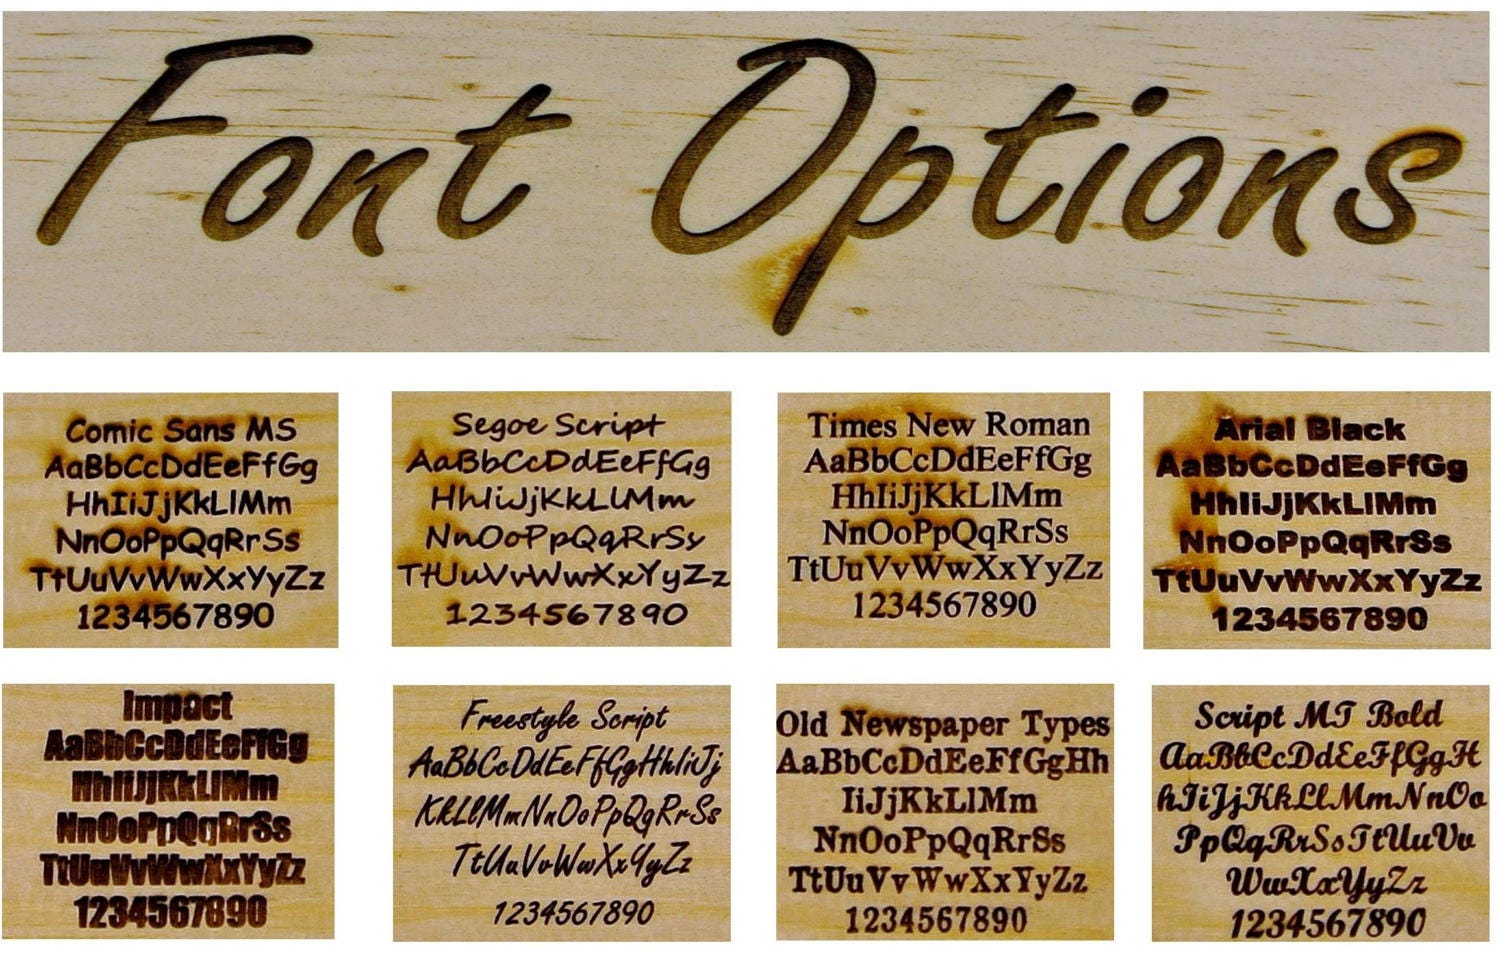 Font Options
Comic Sans MS
AaBbCcDdEeFfGg
HhIiJjKkLlMm
NnOoPpQqRrSs
TtUuVvWwXxYyZz
1234567890
Segoe Script
AaBbCcDdEeFfGg
HhIiJjKkLlMm
NnOoPpQqRrSs
TtUuVvWwXxYyZz
1234567890
Times New Roman
AaBbCcDdEeFfGg
HhIiJjKkLlMm
NnOoPpQqRrSs
TtUuVvWwXxYyZz
1234567890
Arial Black
AaBbCcDdEeFfGg
HhIiJjKkLlMm
NnOoPpQqRrSs
TtUuVvWwXxYyZz
1234567890
Impact
AaBbCcDdEeFfGg
HhIiJjKkLlMm
NnOoPpQqRrSs
TtUuVvWwXxYyZz
1234567890
Freestyle Script
AaBbCcDdEeFfGgHhIiJj
KkLlMmNnOoPpQqRrSs
TtUuVvWwXxYyZz
1234567890
Old Newspaper Types
AaBbCcDdEeFfGgHh
IiJjKkLlMm
NnOoPpQqRrSs
TtUuVvWwXxYyZz
1234567890
Script MT Bold
AaBbCcDdEeFfGgH
hIiJjKkLlMmNnOo
PpQqRrSsTtUuVv
WwXxYyZz
1234567890